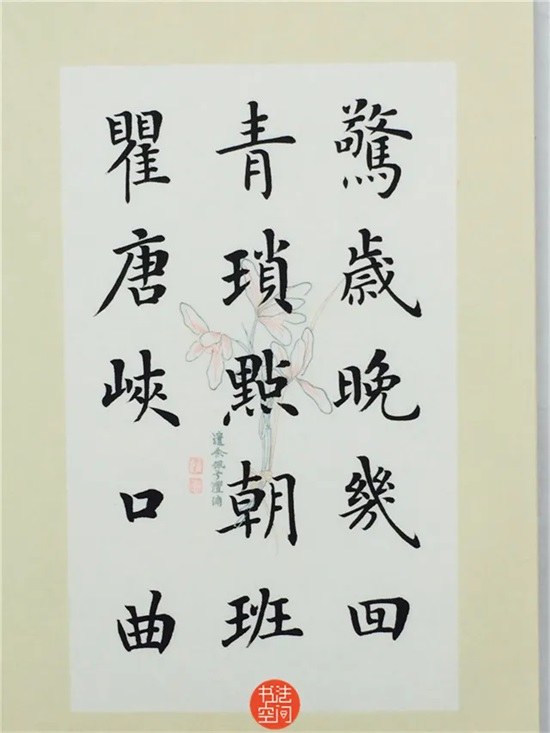 驚歲晚幾回
青瑣點朝班
瞿唐峽口曲
遺余佩兮澧浦
书法
空间